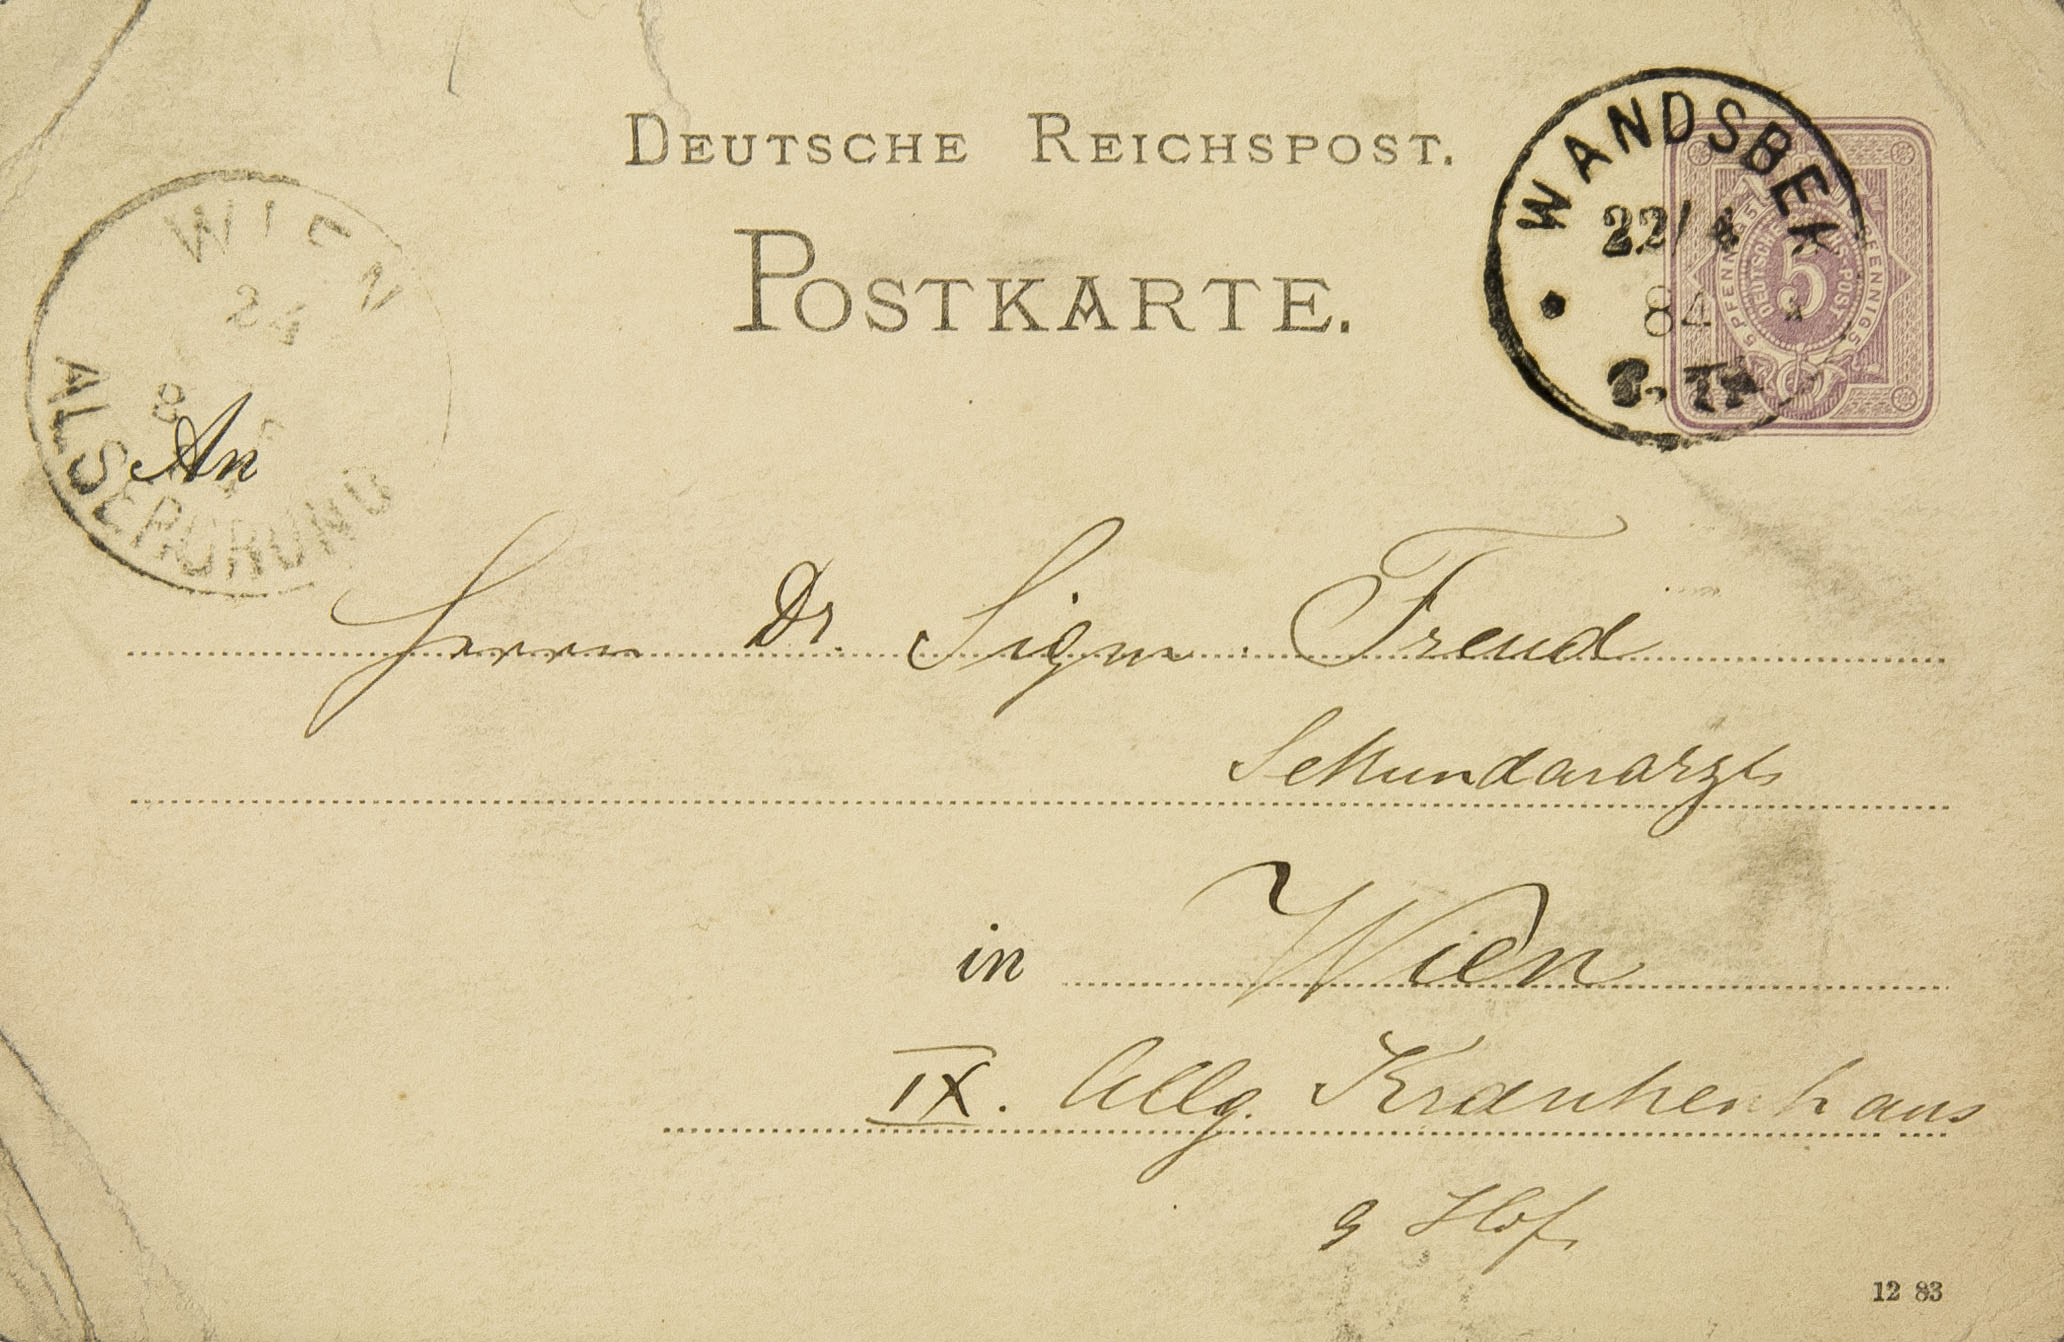 DEUTSCHE REICHSPOST.
POSTKARTE.
WANDSBEK
22/4
84
WIEN
24
8
ALSERGRUND
5
5 PFENNIG 5
DEUTSCHE REICHSPOST
An
Herrn Dr. Sigm. Freud
Sekundararzt
in Wien
IX. Allg. Krankenhaus
9 Hof.
12 83